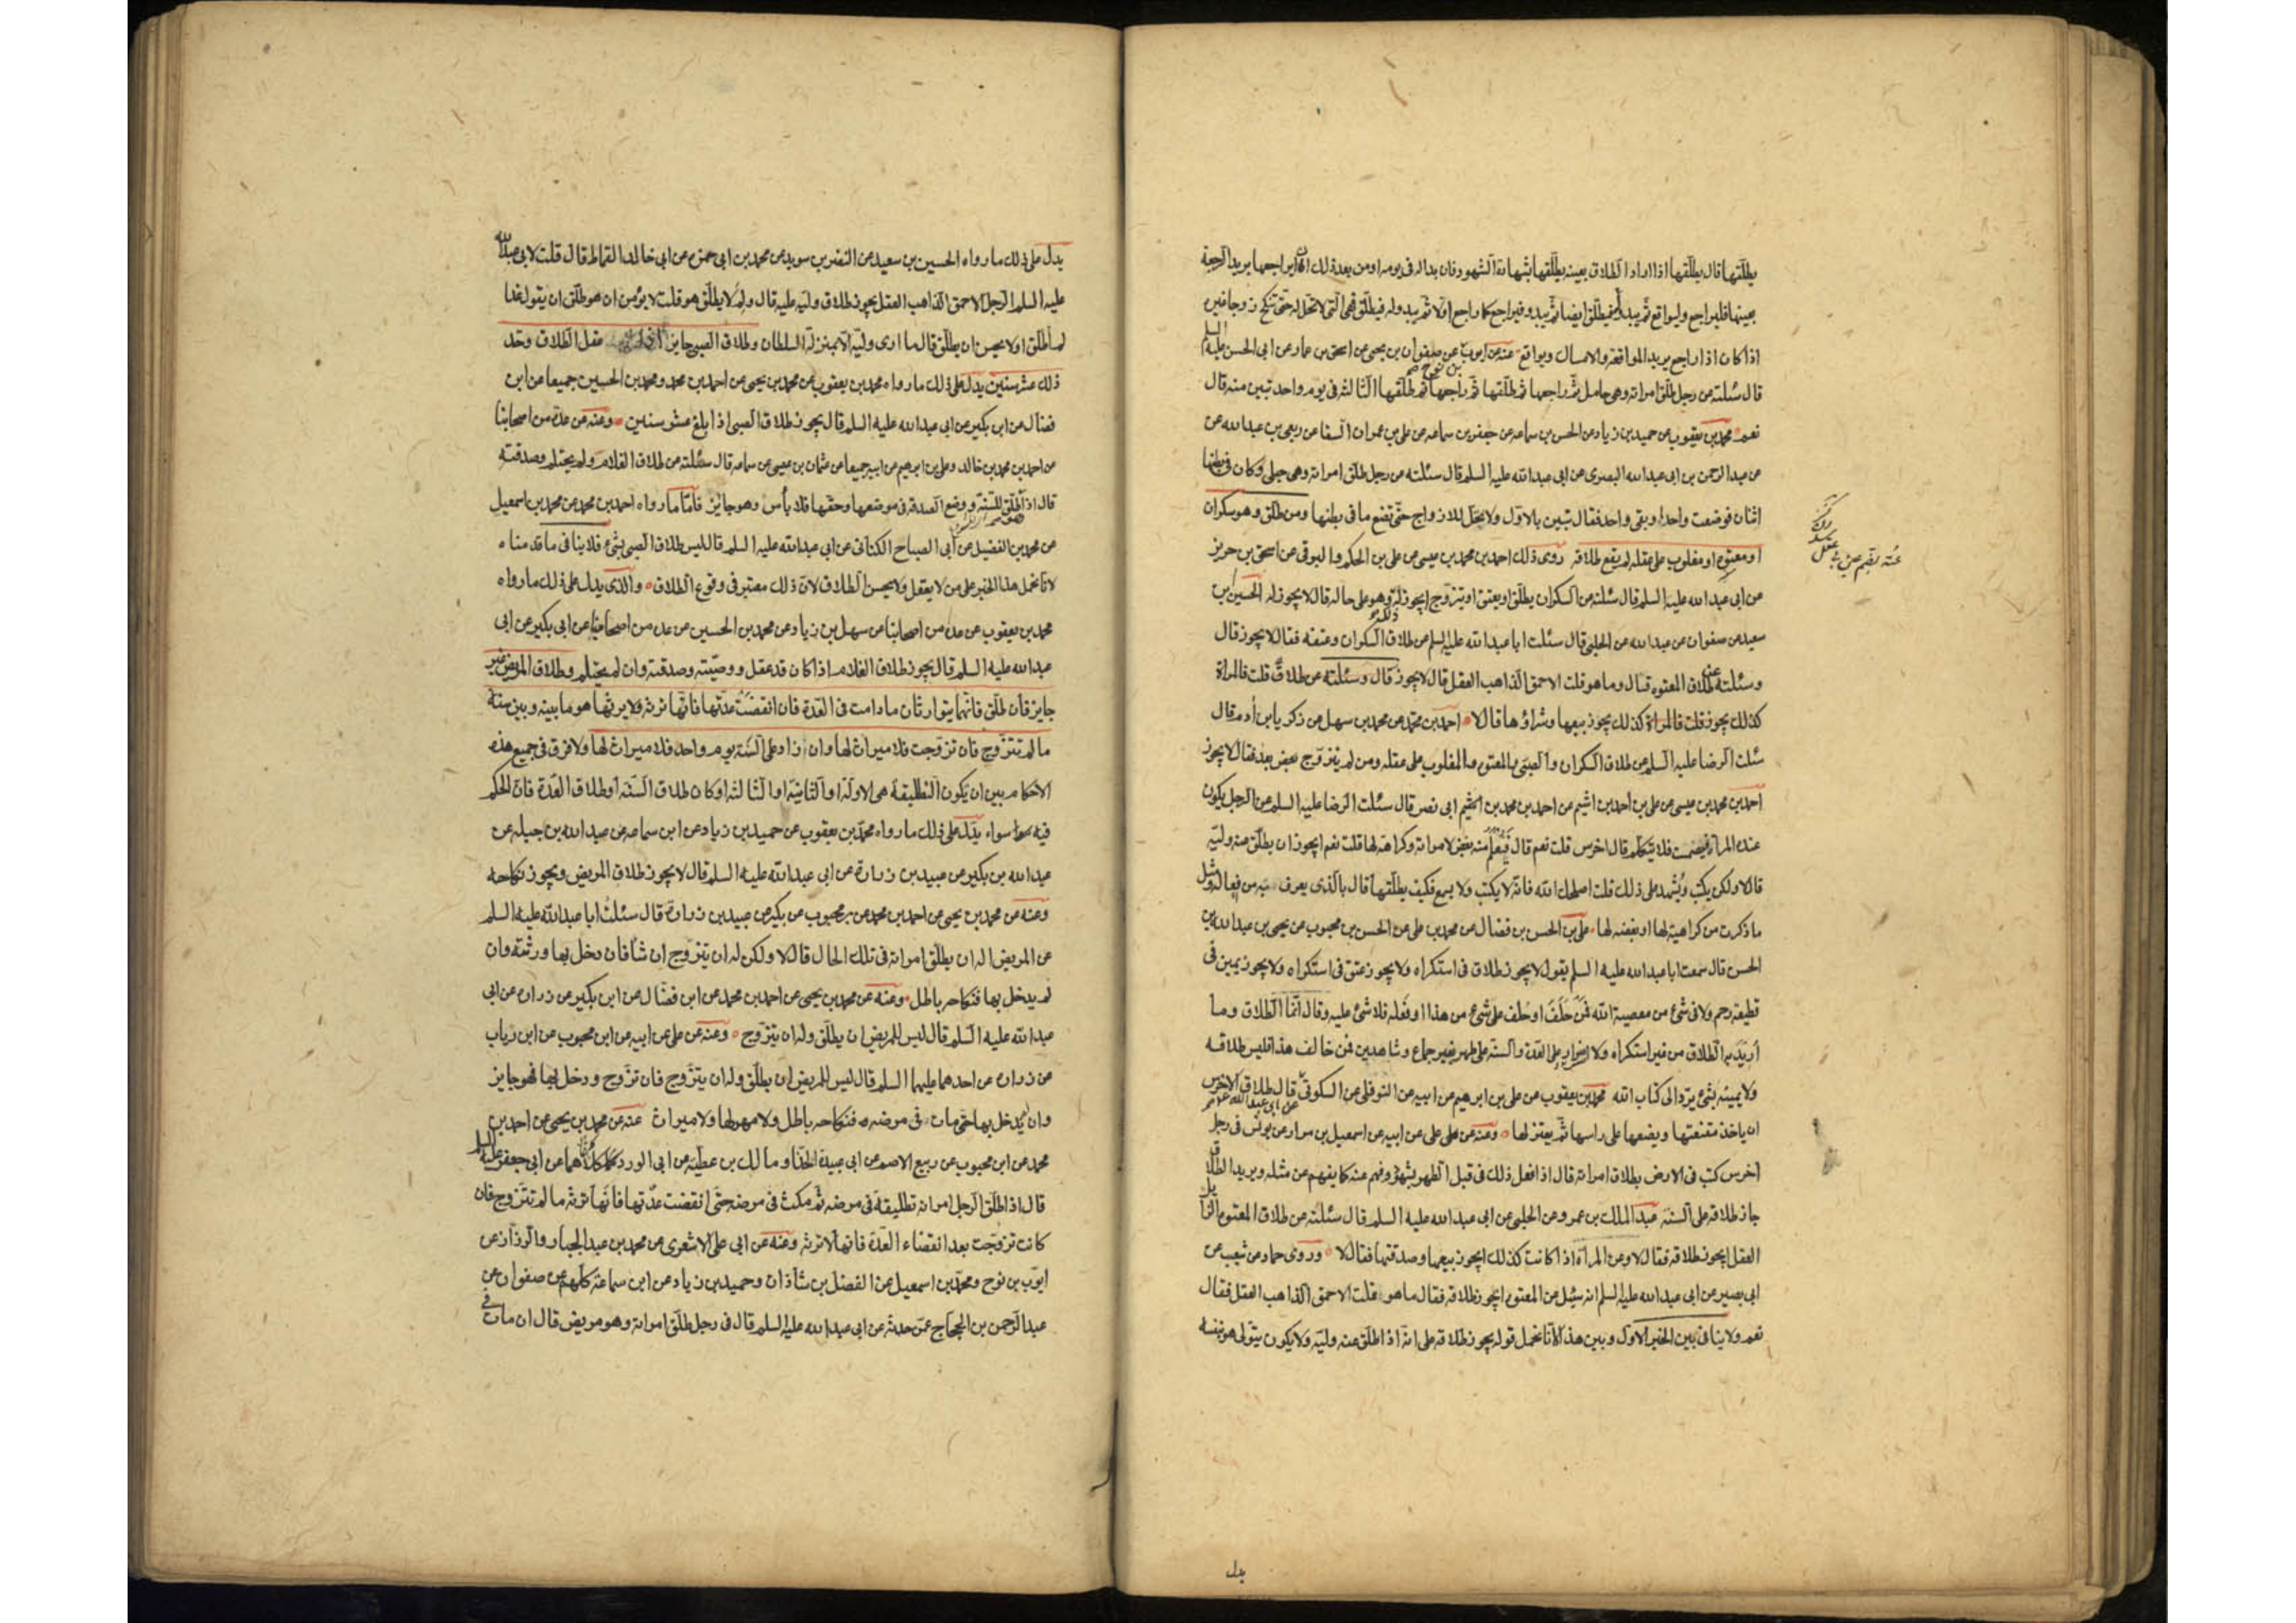 يطلّقها قال يطلّقها اذا اراد الطلاق بعينه يطلّقها بشهادة الشهود فان بدا له فى يومه او من بعد ذلك ان يراجعها يريد الرجعة
بعينها فليراجع وليواقع ثم يبدو له فيطلّق ايضا ثم يبدو فيراجع كما راجع اوّلا ثم يبدو له فيطلّق فهى الّتى لا تحلّ له حتّى تنكح زوجا غيره
اذا كان اذا راجع يريد المواقعة والامساك ويواقع عنه عن ايوب بن نوح عن صفوان بن يحيى عن اسحق بن عمار عن ابى الحسن عليه السلم
قال سئلته عن رجل طلّق امراته وهى حامل ثمّ راجعها ثم طلّقها ثمّ راجعها ثم طلّقها الثالثة فى يوم واحد تبين منه قال
نعم محمد بن يعقوب عن حميد بن زياد عن الحسن بن سماعه عن جعفر بن سماعه عن على بن عمران السقا عن ربعى بن عبد الله عن
عبد الرحمن بن ابى عبد الله البصرى عن ابى عبد الله عليه السلم قال سئلته عن رجل طلّق امراته وهى حبلى وكان فى بطنها
اثنان فوضعت واحدا وبقى واحد فقال تبين بالاوّل ولا يحلّ للازواج حتّى تضع ما فى بطنها ومن طلّق وهو سكران
او معتوه او مغلوب على عقله لم يقع طلاقه روى ذلك احمد بن محمد بن عيسى عن على بن الحكم والبرقى عن اسحق بن حريز
عن ابى عبد الله عليه السلم قال سئلته عن السكران يطلّق او يعتق او يتزوّج ايجوز له ذلك وهو على حاله قال لا يجوز له الحسين بن
سعيد عن صفوان عن عبد الله عن الحلبى قال سئلت ابا عبد الله عليه السلم عن طلاق السكران وعتقه فقال لا يجوز قال
وسئلته عن طلاق المعتوه قال وما هو قلت الاحمق الذاهب العقل قال لا يجوز قال وسئلته عن طلاق قلت فالمراة
كذلك يجوز قلت فالمراة كذلك يجوز بيعها وشراؤها قال لا احمد بن محمّد عن محمد بن سهل عن زكريا بن آدم قال
سئلت الرضا عليه السلم عن طلاق السكران والصبى والمعتوه والمغلوب على عقله ومن لم يتزوّج بعد فقال لا يجوز
احمد بن محمد بن عيسى عن على بن احمد بن اشيم عن احمد بن محمد بن ابى نصر قال سئلت الرضا عليه السلم عن الرجل يكون
عنده المراة فيصمت فلا يتكلّم قال اخرس قلت نعم قال فيعلم منه بغض لامراته وكراهة لها قلت نعم ايجوز ان يطلّق عنه وليّه
قال لا ولكن يكتب ويشهد على ذلك قلت اصلحك الله فانّه لا يكتب ولا يسمع فكيف يطلّقها قال بالّذى يعرف منه من فعاله مثل
ما ذكرت من كراهيته لها او بغضه لها على بن الحسن بن فضال عن محمد بن على عن الحسن بن محبوب عن يحيى بن عبد الله بن
الحسن قال سمعت ابا عبد الله عليه السلم يقول لا يجوز طلاق فى استكراه ولا يجوز عتق فى استكراه ولا يجوز يمين فى
قطيعة رحم ولا فى شئ من معصية الله فمن حلف او حلف على شئ من هذا او فعله فلا شئ عليه وقال انّما الطلاق وما
اريد به الطلاق من غير استكراه ولا اضرار على العدة والسنّة على طهر بغير جماع وشاهدين فمن خالف هذا فليس طلاقه
ولا يمينه بشئ يردّ الى كتاب الله محمد بن يعقوب عن على بن ابرهيم عن ابيه عن النوفلى عن السكونى عن ابى عبد الله ع م قال طلاق الاخرس
ان ياخذ مقنعتها ويضعها على راسها ثمّ يعتزلها وعنه عن على عن ابيه عن اسمعيل بن مرار عن يونس فى رجل
اخرس كتب فى الارض بطلاق امراته قال اذا فعل ذلك فى قبل الطهر بشهود وفهم عنه كما يفهم عن مثله ويريد الطلاق
جاز طلاقه على السنّة عبد الملك بن عمرو عن الحلبى عن ابى عبد الله عليه السلم قال سئلته عن طلاق المعتوه الزايل
العقل ايجوز طلاقه فقال لا وعن المراة اذا كانت كذلك ايجوز بيعها وصدقتها فقال لا وروى حماد عن شعيب عن
ابى بصير عن ابى عبد الله عليه السلم انه سئل عن المعتوه ايجوز طلاقه فقال ما هو قلت الاحمق الذاهب العقل فقال
نعم ولا ينافى بين الخبر الاول وبين هذا لانّا نحمل قوله يجوز طلاقه على انّه اذا طلّق عنه وليّه ولا يكون يتولى هو بنفسه
يدل
يدلّ على ذلك ما رواه الحسين بن سعيد عن النضر بن سويد عن محمد بن ابى حمزه عن ابى خالد القماط قال قلت لابى عبد الله
عليه السلم الرجل الاحمق الذاهب العقل يجوز طلاق وليّه عليه قال ولم لا يطلّق هو قلت لا يؤمن ان هو طلّق ان يقول غدا
لم اطلّق او لا يحسن ان يطلّق قال ما ارى وليّه الا بمنزلة السلطان وطلاق الصبى جايز اذا عقل الطلاق وحدّ
ذلك عشر سنين يدلّ على ذلك ما رواه محمد بن يعقوب عن محمد بن يحيى عن احمد بن محمد ومحمد بن الحسين جميعا عن ابن
فضال عن ابن بكير عن ابى عبد الله عليه السلم قال يجوز طلاق الصبى اذا بلغ عشر سنين وعنه عن عدة من اصحابنا
عن احمد بن محمد بن خالد وعلى بن ابرهيم عن ابيه جميعا عن عثمان بن عيسى عن سماعه قال سئلته عن طلاق الغلام ولم يحتلم وصدقته
قال اذا طلّق للسنّة ووضع الصدقة فى موضعها وحقّها فلا بأس وهو جايز فامّا ما رواه احمد بن محمد عن محمد بن اسمعيل
عن محمد بن الفضيل عن ابى الصباح الكنانى عن ابى عبد الله عليه السلم قال ليس طلاق الصبى بشئ فلا ينافى ما قدمناه
لانّا نحمل هذا الخبر على من لا يعقل ولا يحسن الطلاق لانّ ذلك معتبر فى وقوع الطلاق والّذى يدل على ذلك ما رواه
محمد بن يعقوب عن عدة من اصحابنا عن سهل بن زياد عن محمد بن الحسين عن عدة من اصحابنا عن ابى بكير عن ابى
عبد الله عليه السلم قال يجوز طلاق الغلام اذا كان قد عقل ووصيّته وصدقته وان لم يحتلم وطلاق المريض غير
جايز فان طلّق فانّهما يتوارثان ما دامت فى العدّة فان انقضت عدّتها فانّها ترثه ولا يرثها هو ما بينه وبين سنة
ما لم تتزوّج فان تزوّجت فلا ميراث لها وان زاد على السّنة يوم واحد فلا ميراث لها ولا فرق فى جميع هذه
الاحكام بين ان يكون التطليقة هى الاولة او الثانيّة او الثالثة او كان طلاق السنّة او طلاق العدّة فانّ الحكم
فيه سواء يدلّ على ذلك ما رواه محمّد بن يعقوب عن حميد بن زياد عن ابن سماعه عن عبد الله بن جبله عن
عبد الله بن بكير عن عبيد بن زرارة عن ابى عبد الله عليه السلم قال لا يجوز طلاق المريض ويجوز نكاحه
وعنه عن محمد بن يحيى عن احمد بن محمد عن بن محبوب عن بكير عن عبيد بن زرارة قال سئلت ابا عبد الله عليه السلم
عن المريض اله ان يطلّق امراته فى تلك الحال قال لا ولكن له ان يتزوّج ان شا فان دخل بها ورثته وان
لم يدخل بها فنكاحه باطل وعنه عن محمد بن يحيى عن احمد بن محمد عن ابن فضّال عن ابن بكير عن زراره عن ابى
عبد الله عليه السّلم قال ليس للمريض ان يطلّق وله ان يتزوّج وعنه عن على عن ابيه عن ابن محبوب عن ابن رياب
عن زراره عن احدهما عليهما السلم قال ليس للمريض ان يطلّق وله ان يتزّوج فان تزوّج ودخل بها فهو جايز
وان لم يدخل بها حتى مات فى مرضه فنكاحه باطل ولا مهر لها ولا ميراث عنه عن محمد بن يحيى عن احمد بن
محمد عن ابن محبوب عن ربيع الاصم عن ابى عبيدة الحذا ومالك بن عطيّه عن ابى الورد كلاهما عن ابى جعفر عليه السلم
قال اذا طلّق الرّجل امراته تطليقة فى مرضه ثمّ مكث فى مرضه حتّى انقضت عدّتها فانّها ترثه ما لم تتزّوج فان
كانت تزوّجت بعد انقضاء العدّة فانها لا ترثه وعنه عن ابى على الاشعرى عن محمد بن عبد الجبار والرزاز عن
ايّوب بن نوح ومحمّد بن اسمعيل عن الفضل بن شاذان وحميد بن زياد عن ابن سماعة كلّهم عن صفوان عن
عبد الرّحمن بن الحجاج عمّن حدثه عن ابى عبد الله عليه السلم قال فى رجل طلّق امراته وهو مريض قال ان مات فى